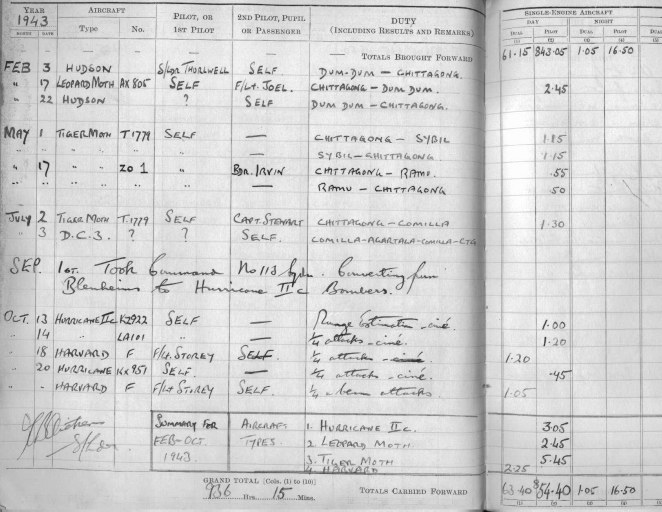 YEAR AIRCRAFT PILOT, OR 2ND PILOT, PUPIL DUTY SINGLE-ENGINE AIRCRAFT
1943 Type No. 1ST PILOT OR PASSENGER (INCLUDING RESULTS AND REMARKS) DAY NIGHT
MONTH DATE DUAL PILOT DUAL PILOT
(1) (2) (3) (4)
— — — — — — TOTALS BROUGHT FORWARD 61.15 843.05 1.05 16.50
FEB 3 HUDSON S/LDR THORLWELL SELF DUM-DUM – CHITTAGONG.
" 17 LEOPARD MOTH AX 805 SELF F/LT. JOEL. CHITTAGONG – DUM DUM. 2.45
" 22 HUDSON ? SELF DUM DUM – CHITTAGONG.
MAY 1 TIGER MOTH T1779 SELF — CHITTAGONG – SYBIL
" " " " " — SYBIL – CHITTAGONG 1.15
" 17 " " ZO 1 " BDR. IRVIN CHITTAGONG – RAMU. .55
" " " " " " — RAMU – CHITTAGONG .50
JULY 2 TIGER MOTH T.1779 SELF CAPT. STEWART CHITTAGONG – COMILLA 1.30
" 3 D.C.3. ? ? SELF. COMILLA-AGARTALA-COMILLA-CTG
SEP. 1st. Took Command No 113 Sqdn. Converting from
Blenheims to Hurricane II c Bombers.
OCT. 13 HURRICANE IIc KZ922 SELF — Range Estimation – ciné. 1.00
" 14 " LA101 " — ¼ attacks – ciné. 1.20
" 18 HARVARD F F/LT. STOREY SELF ¼ attacks – ciné. 1.20
" 20 HURRICANE KX851 SELF. — ¼ attacks – ciné. .45
" " HARVARD F F/LT STOREY SELF. ¼ & beam attacks. 1.05
SUMMARY FOR AIRCRAFT 1. HURRICANE IIc. 3.05
S/Ldr. FEB-OCT. TYPES. 2 LEOPARD MOTH. 2.45
1943. 3. TIGER MOTH 5.45
4 HARVARD 2.25
GRAND TOTAL [Cols. (1) to (10)]
936 Hrs. 15 Mins. TOTALS CARRIED FORWARD 63.40 854.40 1.05 16.50
(1) (2) (3) (4)